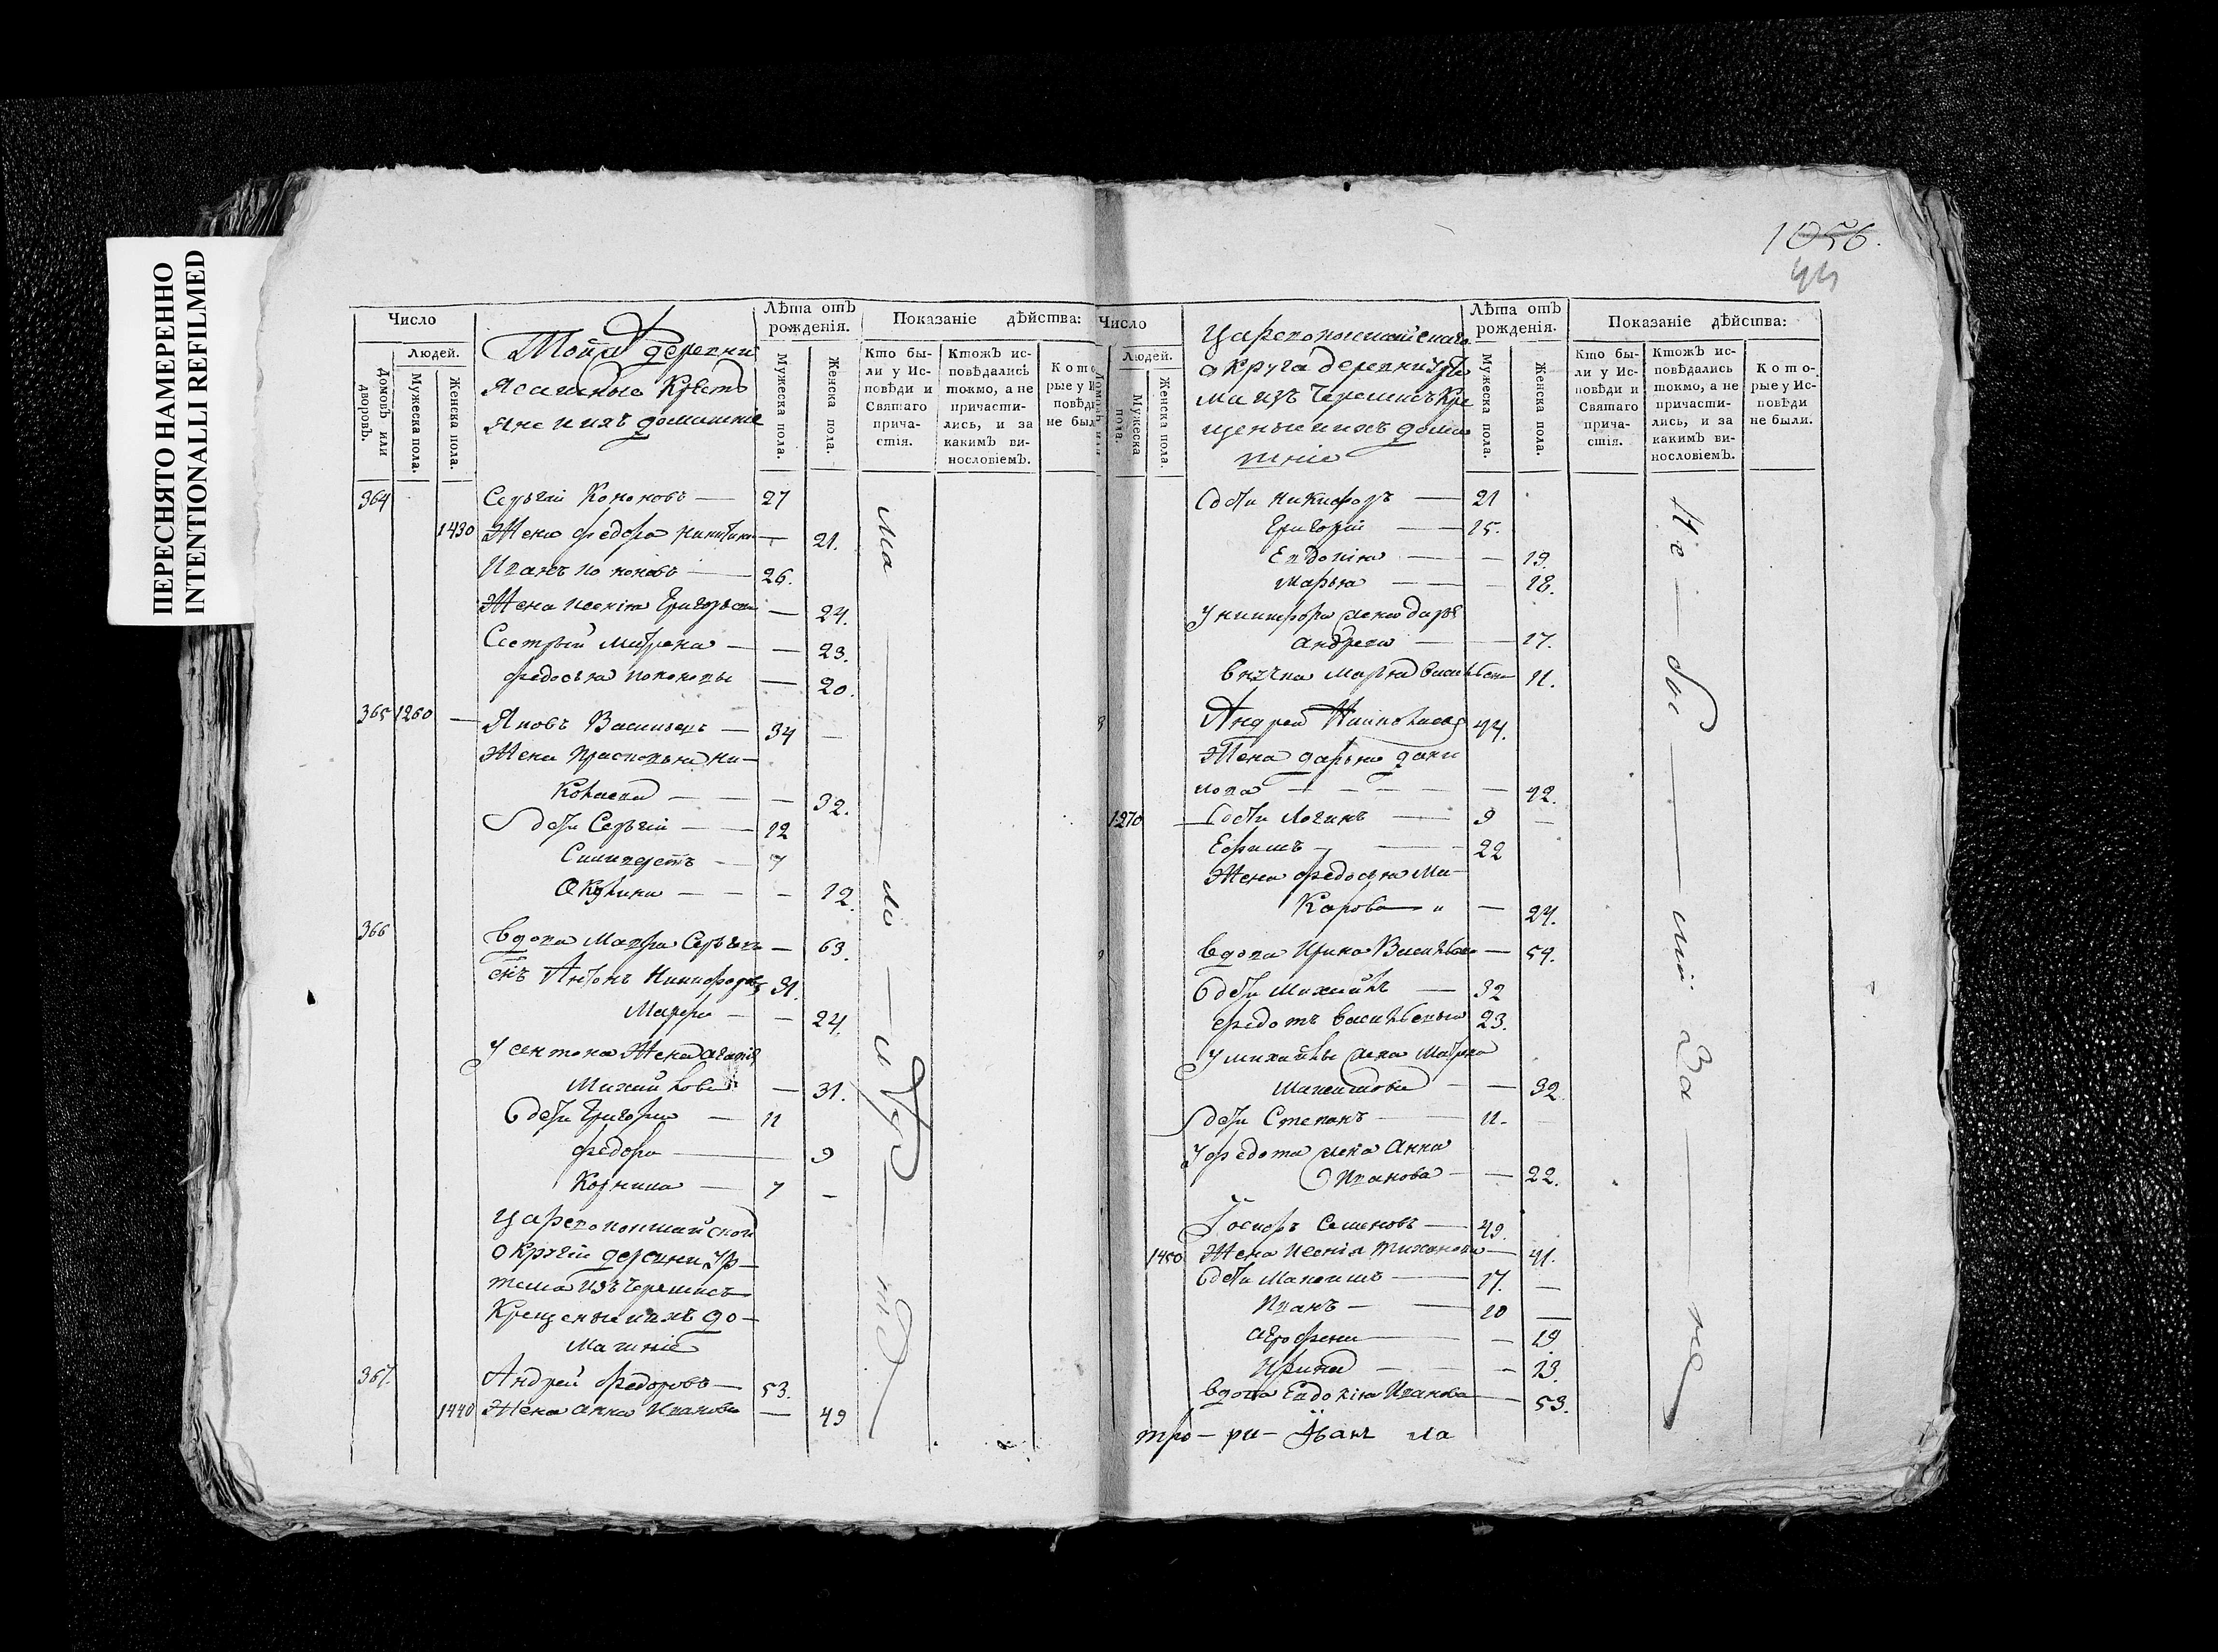 ПЕРЕСНЯТО НАМЕРЕННО
INTENTIONALLI REFILMED
Число
Людей.
Домовъ или дворовъ.
Мужеска пола.
Женска пола.
деревни
Ясашные Кресть
яне и ихъ домашние
Лѣта отъ рожденія.
Мужеска пола.
Женска пола.
Показаніе дѣйства:
Кто бы-
ли у Ис-
повѣди и
Святаго
прича-
стія.
Ктожъ ис-
повѣдались
токмо, а не
причасти-
лись, и за
какимъ ви-
нословіемъ.
Кото
рые у И
повѣди
не был
364 Сергѣи Кононовъ — 27
1430 Жена Федора Никитина — 21.
Иванъ Кононовъ — 26.
Жена Ксенія Григорьева — 24.
Сестры Матрена — 23.
Федосья Кононовы — 20.
365 1260 — Яковъ Васильевъ — 34 —
Жена Прасковья Ни-
колаева — 32.
дѣти Сергѣи — 12
Силивестъ — 7
Окулина — 12.
366 Вдова Марфа Сергѣева — 63.
снъ Антонъ Никифоровъ 31.
Марфа — 24.
У антона Жена агафія
Михайлова — 31.
дѣти Григорей — 11
федора — 9
Корнила — 7 —
Царевококшайской
Округи деревни
из Черемисъ
Крещеные и ихъ до-
машніе
367. Андрей Федоровъ — 53.
1440 Жена анна Иванова — 49
1056.
44
Число
Людей.
Мужеска пола.
Женска пола.
Царевококшайскаго
округа деревни
из Черемисъ Кре
щеные и ихъ дома
шніе
Лѣта отъ рожденія.
Мужеска пола.
Женска пола.
Показаніе дѣйства:
Кто бы-
ли у Ис-
повѣди и
Святаго
прича-
стія.
Ктожъ ис-
повѣдались
токмо, а не
причасти-
лись, и за
какимъ ви-
нословіемъ.
Кото-
рые у Ис-
повѣди
не были.
дѣти Никифоръ — 21
Григорій — 15.
Евдокія — 19.
Марья — 18.
У никифора жена дарья
андреева — 17.
внука Марья Васильева 11.
Андрей Николаевъ 44.
Жена дарья дани
лова — 42.
1270 — дѣти Логинъ — 9 —
Ефимъ — 22
Жена федосья Ма-
карова — 24.
Вдова Ирина Васильева — 54.
дѣти Михайла — 32
федотъ Васильевы 23.
У михайлы жена Матрена
Максимова — 32
дѣти Степанъ — 11.
У федота жена Анна
Иванова — 22.
Іосифъ Семеновъ — 49.
Жена Ксенія Тиханова — 41.
дѣти Максимъ — 17. —
Иванъ — 10 —
агрофена — 19
Ирина — 13.
Вдова Евдокія Иванова — 53.